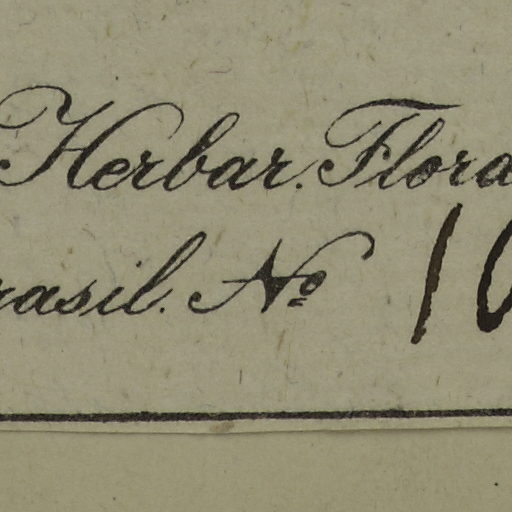 Herbar. Flora
rasil. No 10